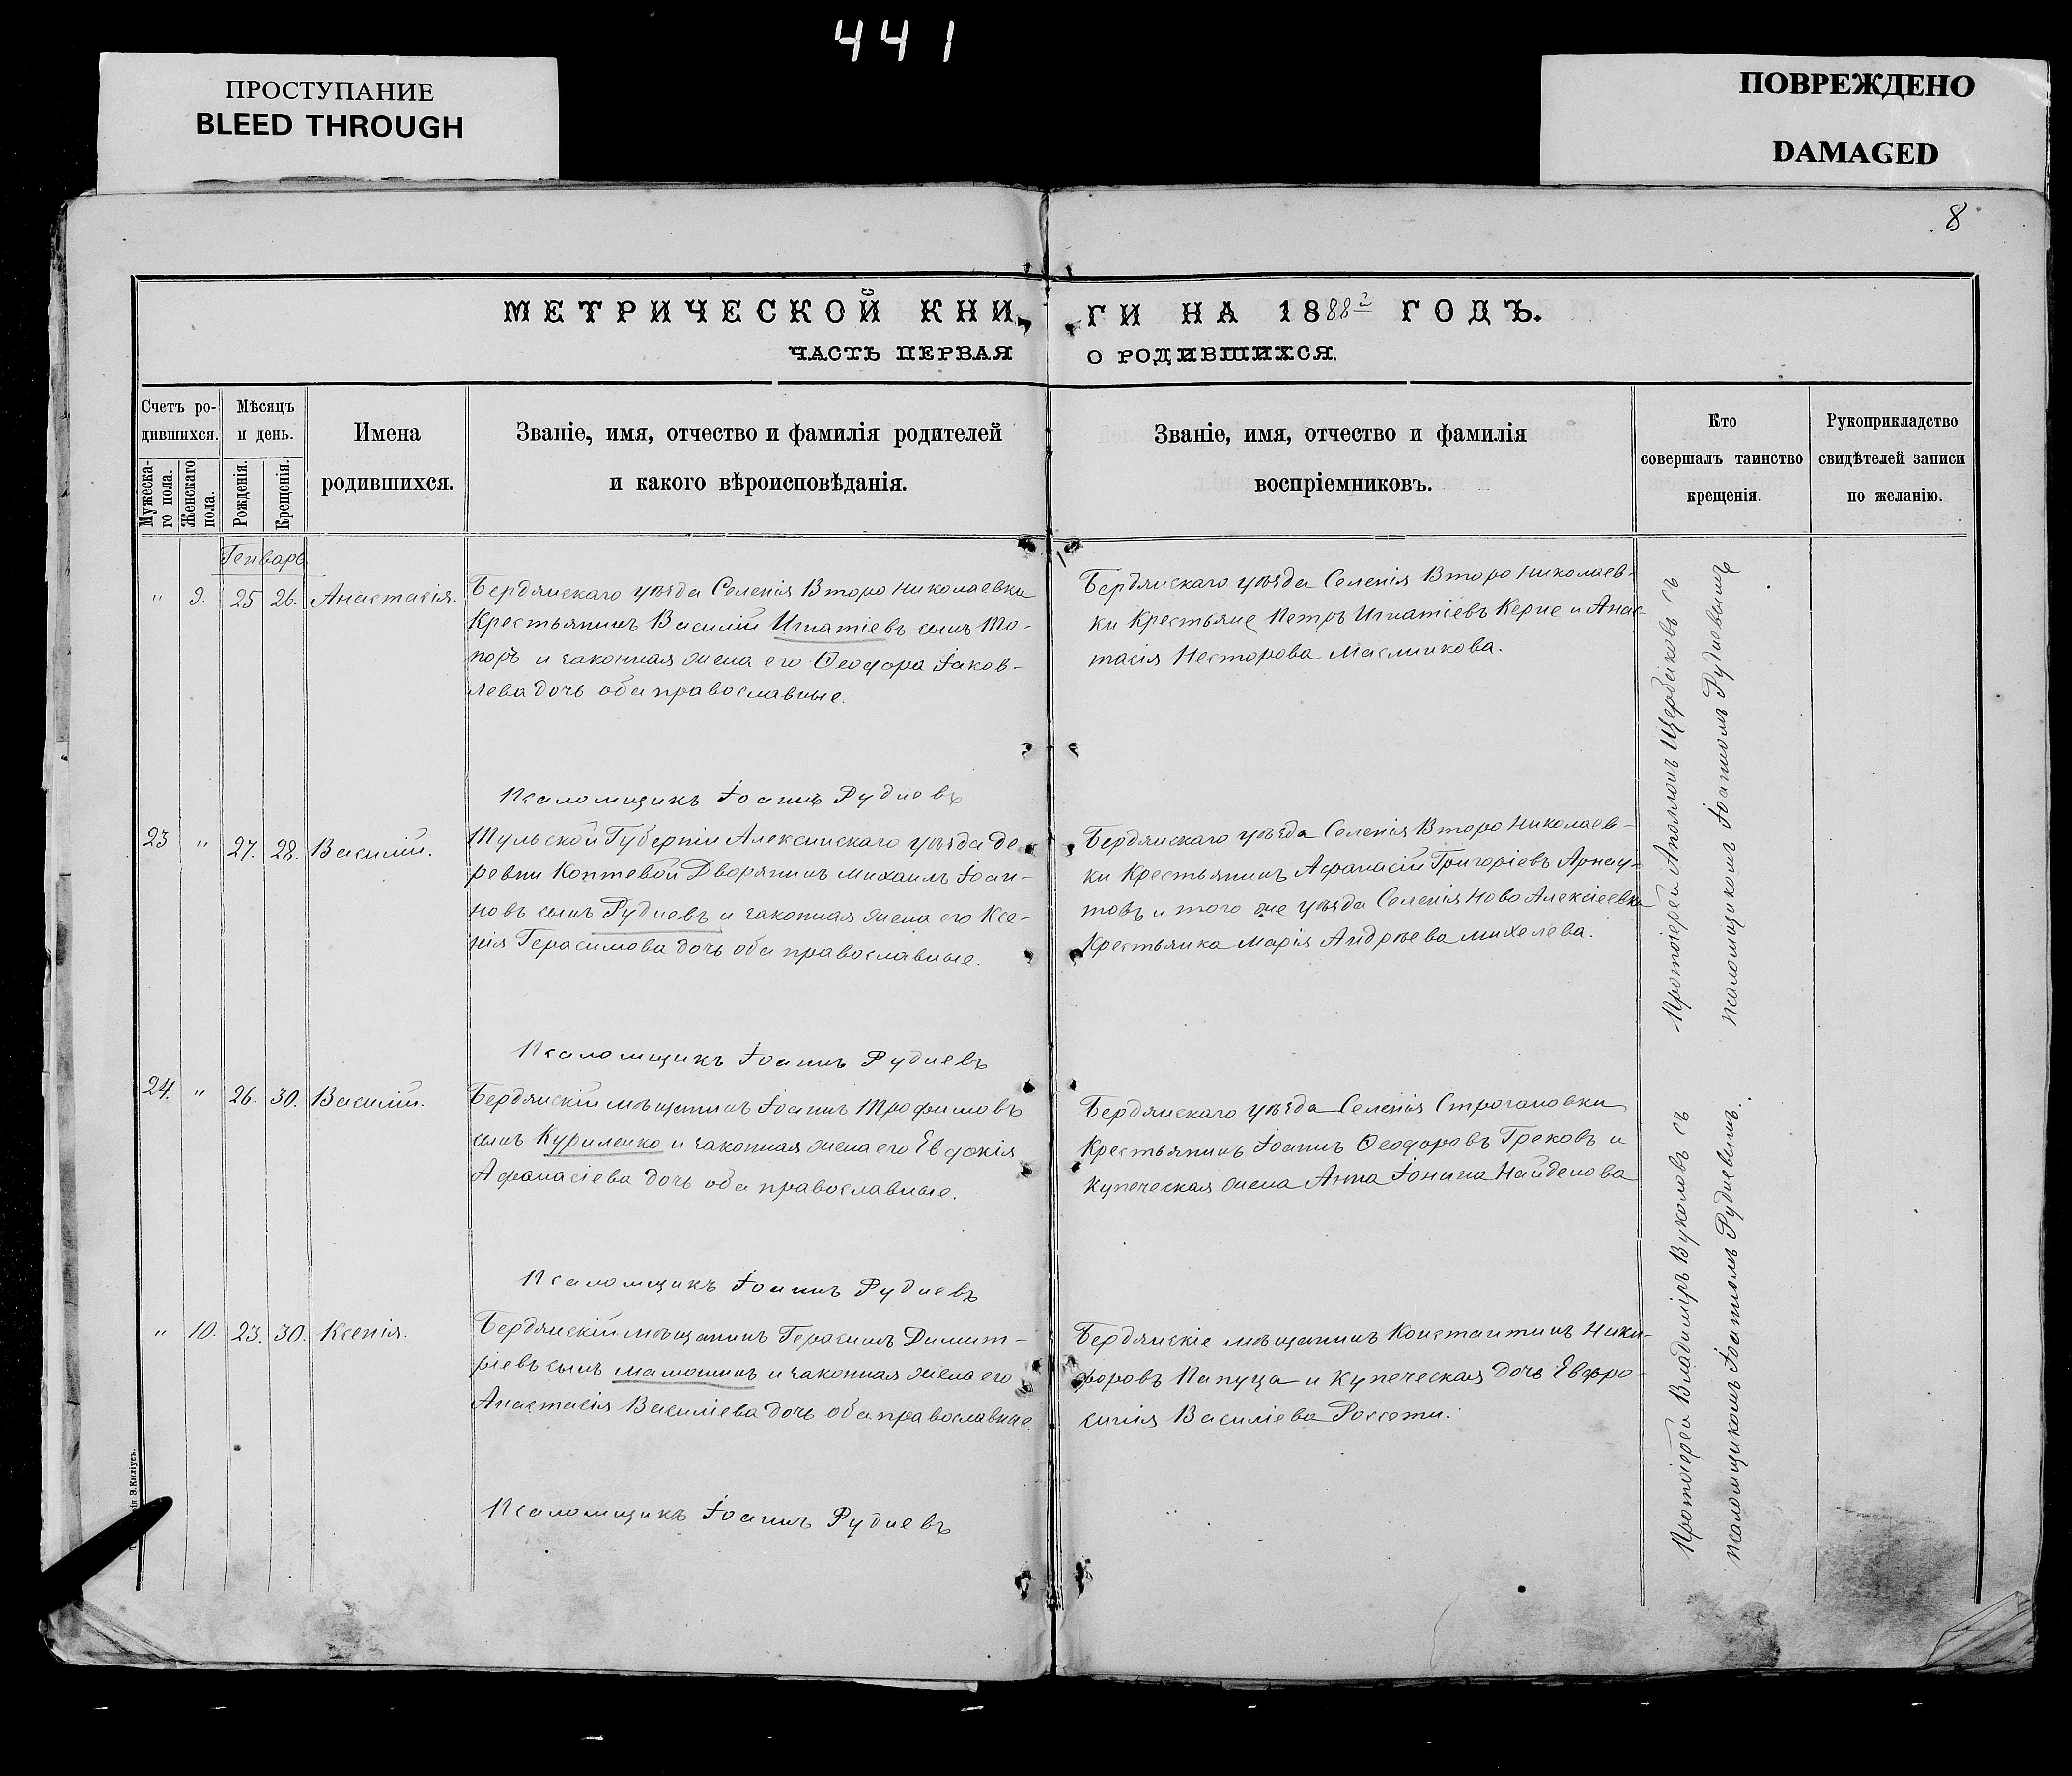 441
ПРОСТУПАНИЕ
BLEED THROUGH
ПОВРЕЖДЕНО
DAMAGED
8
МЕТРИЧЕСКОЙ КНИ
ГИ НА 1888й ГОДЪ.
ЧАСТЬ ПЕРВАЯ
О РОДИВШИХСЯ.
Счетъ ро-
дившихся.
Мужеска-
го пола.
Женскаго
пола.
Мѣсяцъ
и день.
Рожденія.
Крещенія.
Имена
родившихся.
Званіе, имя, отчество и фамилія родителей
и какого вѣроисповѣданія.
Званіе, имя, отчество и фамилія
воспріемниковъ.
Кто
совершалъ таинство
крещенія.
Рукоприкладство
свидѣтелей записи
по желанію.
Генварь
" 9. 25 26. Анастасія.
Бердянскаго уѣзда Селенія Второ Николаевки
Крестьянинъ Василій Игнатіевъ сынъ То-
поръ и законная жена его Ѳеодора Іаков-
лева дочь оба православные.
Бердянскаго уѣзда Селенія Второ Николаев-
ки Крестьяне Петръ Игнатіевъ Керне и Анас-
тасія Несторова Масликова.
Псаломщикъ Іоаннъ Рудневъ
23 " 27. 28. Василій.
Тульской Губерніи Алексинскаго уѣзда де-
ревни Коптевой Дворянинъ Михаилъ Іоан-
новъ сынъ Рудневъ и законная жена его Ксе-
нія Герасимова дочь оба православные.
Бердянскаго уѣзда Селенія Второ Николаев-
ки Крестьянинъ Афанасій Григоріевъ Арнау-
товъ и того же уѣзда Селенія Ново Алексіевки
Крестьянка Марія Андрѣева Михелева.
Протоіерей Аполлонъ Щербаковъ съ
псаломщикомъ Іоанномъ Рудневымъ
Псаломщикъ Іоаннъ Рудневъ
24. " 26. 30. Василій.
Бердянскій мѣщанинъ Іоаннъ Трофимовъ
сынъ Куриленко и законная жена его Евдокія
Афанасіева дочь оба православные.
Бердянскаго уѣзда Селенія Строгановки
Крестьянинъ Іоаннъ Ѳеодоровъ Грековъ и
купеческая жена Анна Іонина Найденова
Псаломщикъ Іоаннъ Рудневъ
" 10. 23. 30. Ксенія.
Бердянскій мѣщанинъ Герасимъ Димит-
ріевъ сынъ Мамонинъ и законная жена его
Анастасія Василіева дочь оба православные.
Бердянскіе мѣщанинъ Константинъ Ники-
форовъ Папуца и купеческая дочь Евфро-
синія Василіева Россети.
Протоіерей Владиміръ Вуколовъ съ
псаломщикомъ Іоанномъ Рудневымъ.
Псаломщикъ Іоаннъ Рудневъ
Э.Килiусъ.